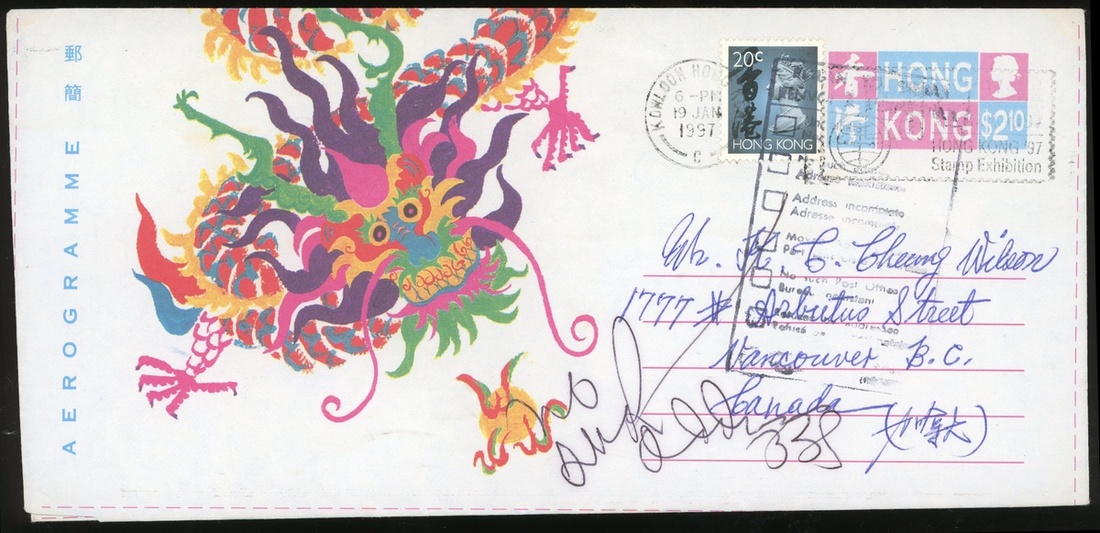 郵簡
AEROGRAMME
KOWLOON HONG
6-PM
19 JAN
1997
C
20c
香港
HONG KONG
香 HONG
港 KONG $2.10
HONG KONG '97
Stamp Exhibition
Address incomplete
Adresse incomplète
No such Post Office
Bureau inexistant
Mr. K. C. Cheung Wilson
1777 # Arbutus Street
Vancouver B.C.
Canada
(加拿大)
No such
Address
338